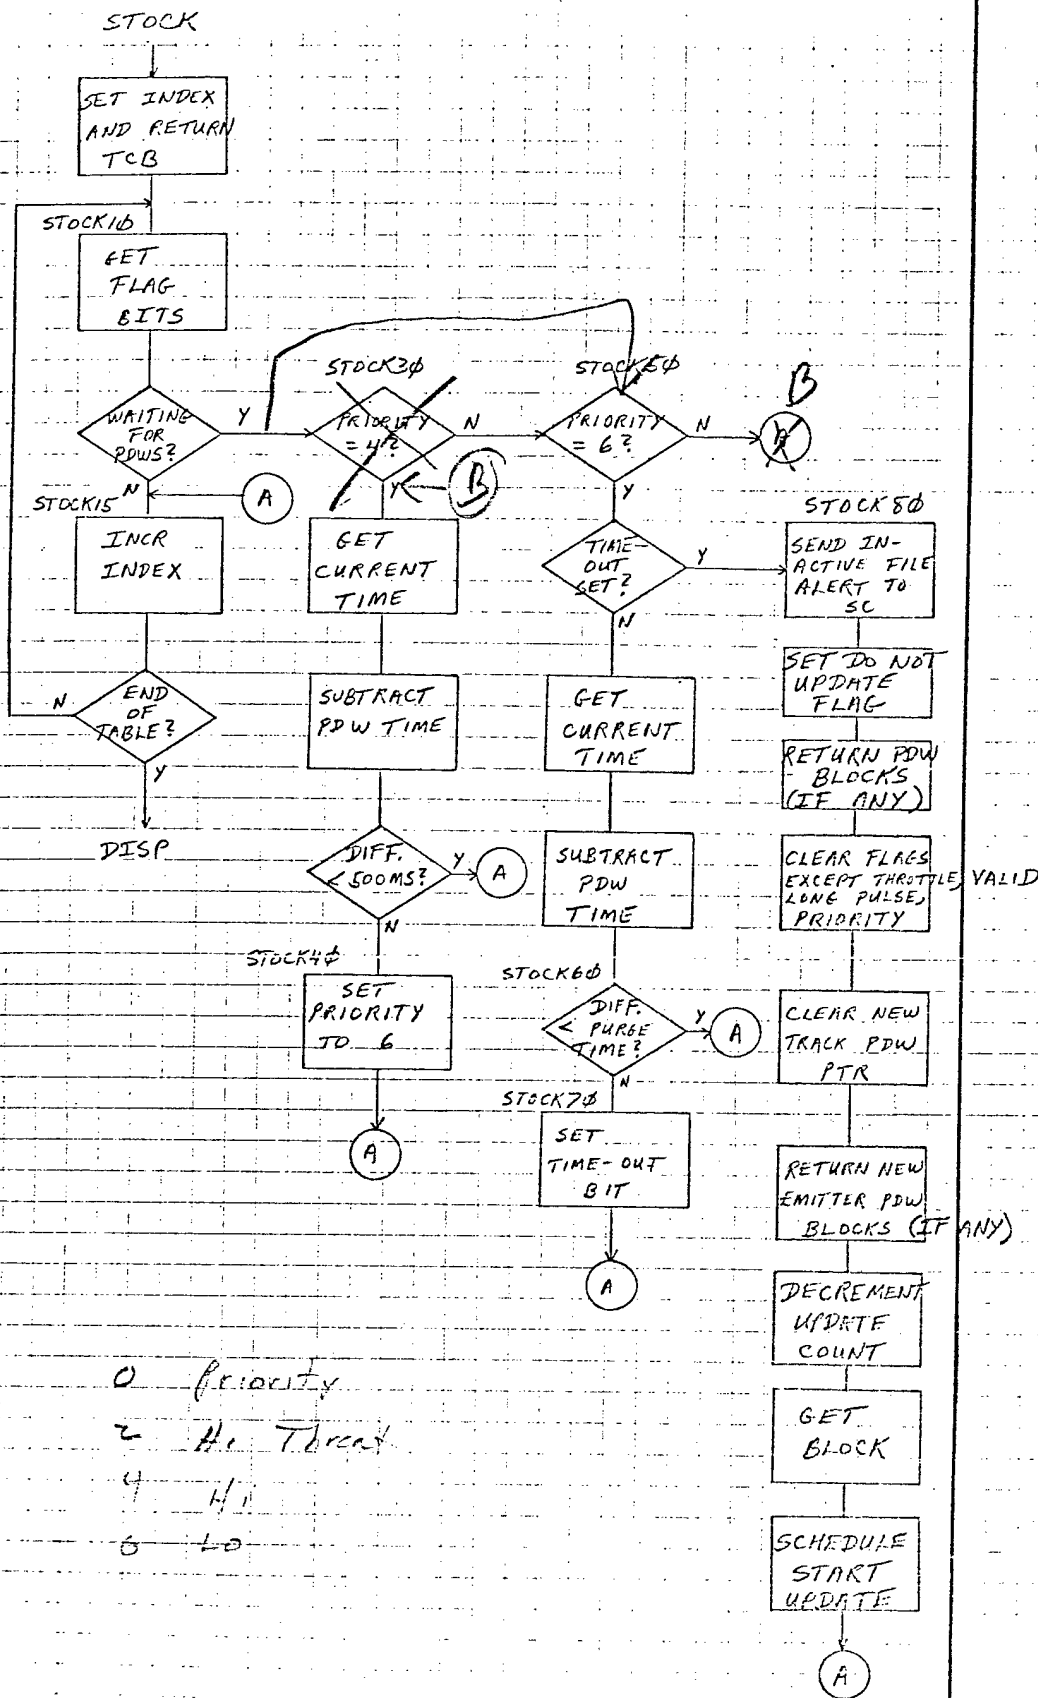 STOCK
SET INDEX
AND RETURN
TCB
STOCK1φ
GET
FLAG
BITS
WAITING
FOR
PDWS?
Y
N
STOCK15
A
INCR
INDEX
END
OF
TABLE?
N
Y
DISP
STOCK3φ
PRIORITY
= 4?
N
Y
B
GET
CURRENT
TIME
SUBTRACT
PDW TIME
DIFF.
< 500MS?
Y
A
N
STOCK4φ
SET
PRIORITY
TO 6
A
STOCK5φ
PRIORITY
= 6?
N
B
Y
TIME-
OUT
SET?
Y
N
GET
CURRENT
TIME
SUBTRACT
PDW
TIME
STOCK6φ
DIFF.
< PURGE
TIME?
Y
A
N
STOCK7φ
SET
TIME-OUT
BIT
A
STOCK8φ
SEND IN-
ACTIVE FILE
ALERT TO
SC
SET DO NOT
UPDATE
FLAG
RETURN PDW
BLOCKS
(IF ANY)
CLEAR FLAGS
EXCEPT THROTTLE, VALID
LONG PULSE,
PRIORITY
CLEAR NEW
TRACK PDW
PTR
RETURN NEW
EMITTER PDW
BLOCKS (IF ANY)
DECREMENT
UPDATE
COUNT
GET
BLOCK
SCHEDULE
START
UPDATE
A
0 Priority
2 Hi Threat
4 Hi
6 Lo